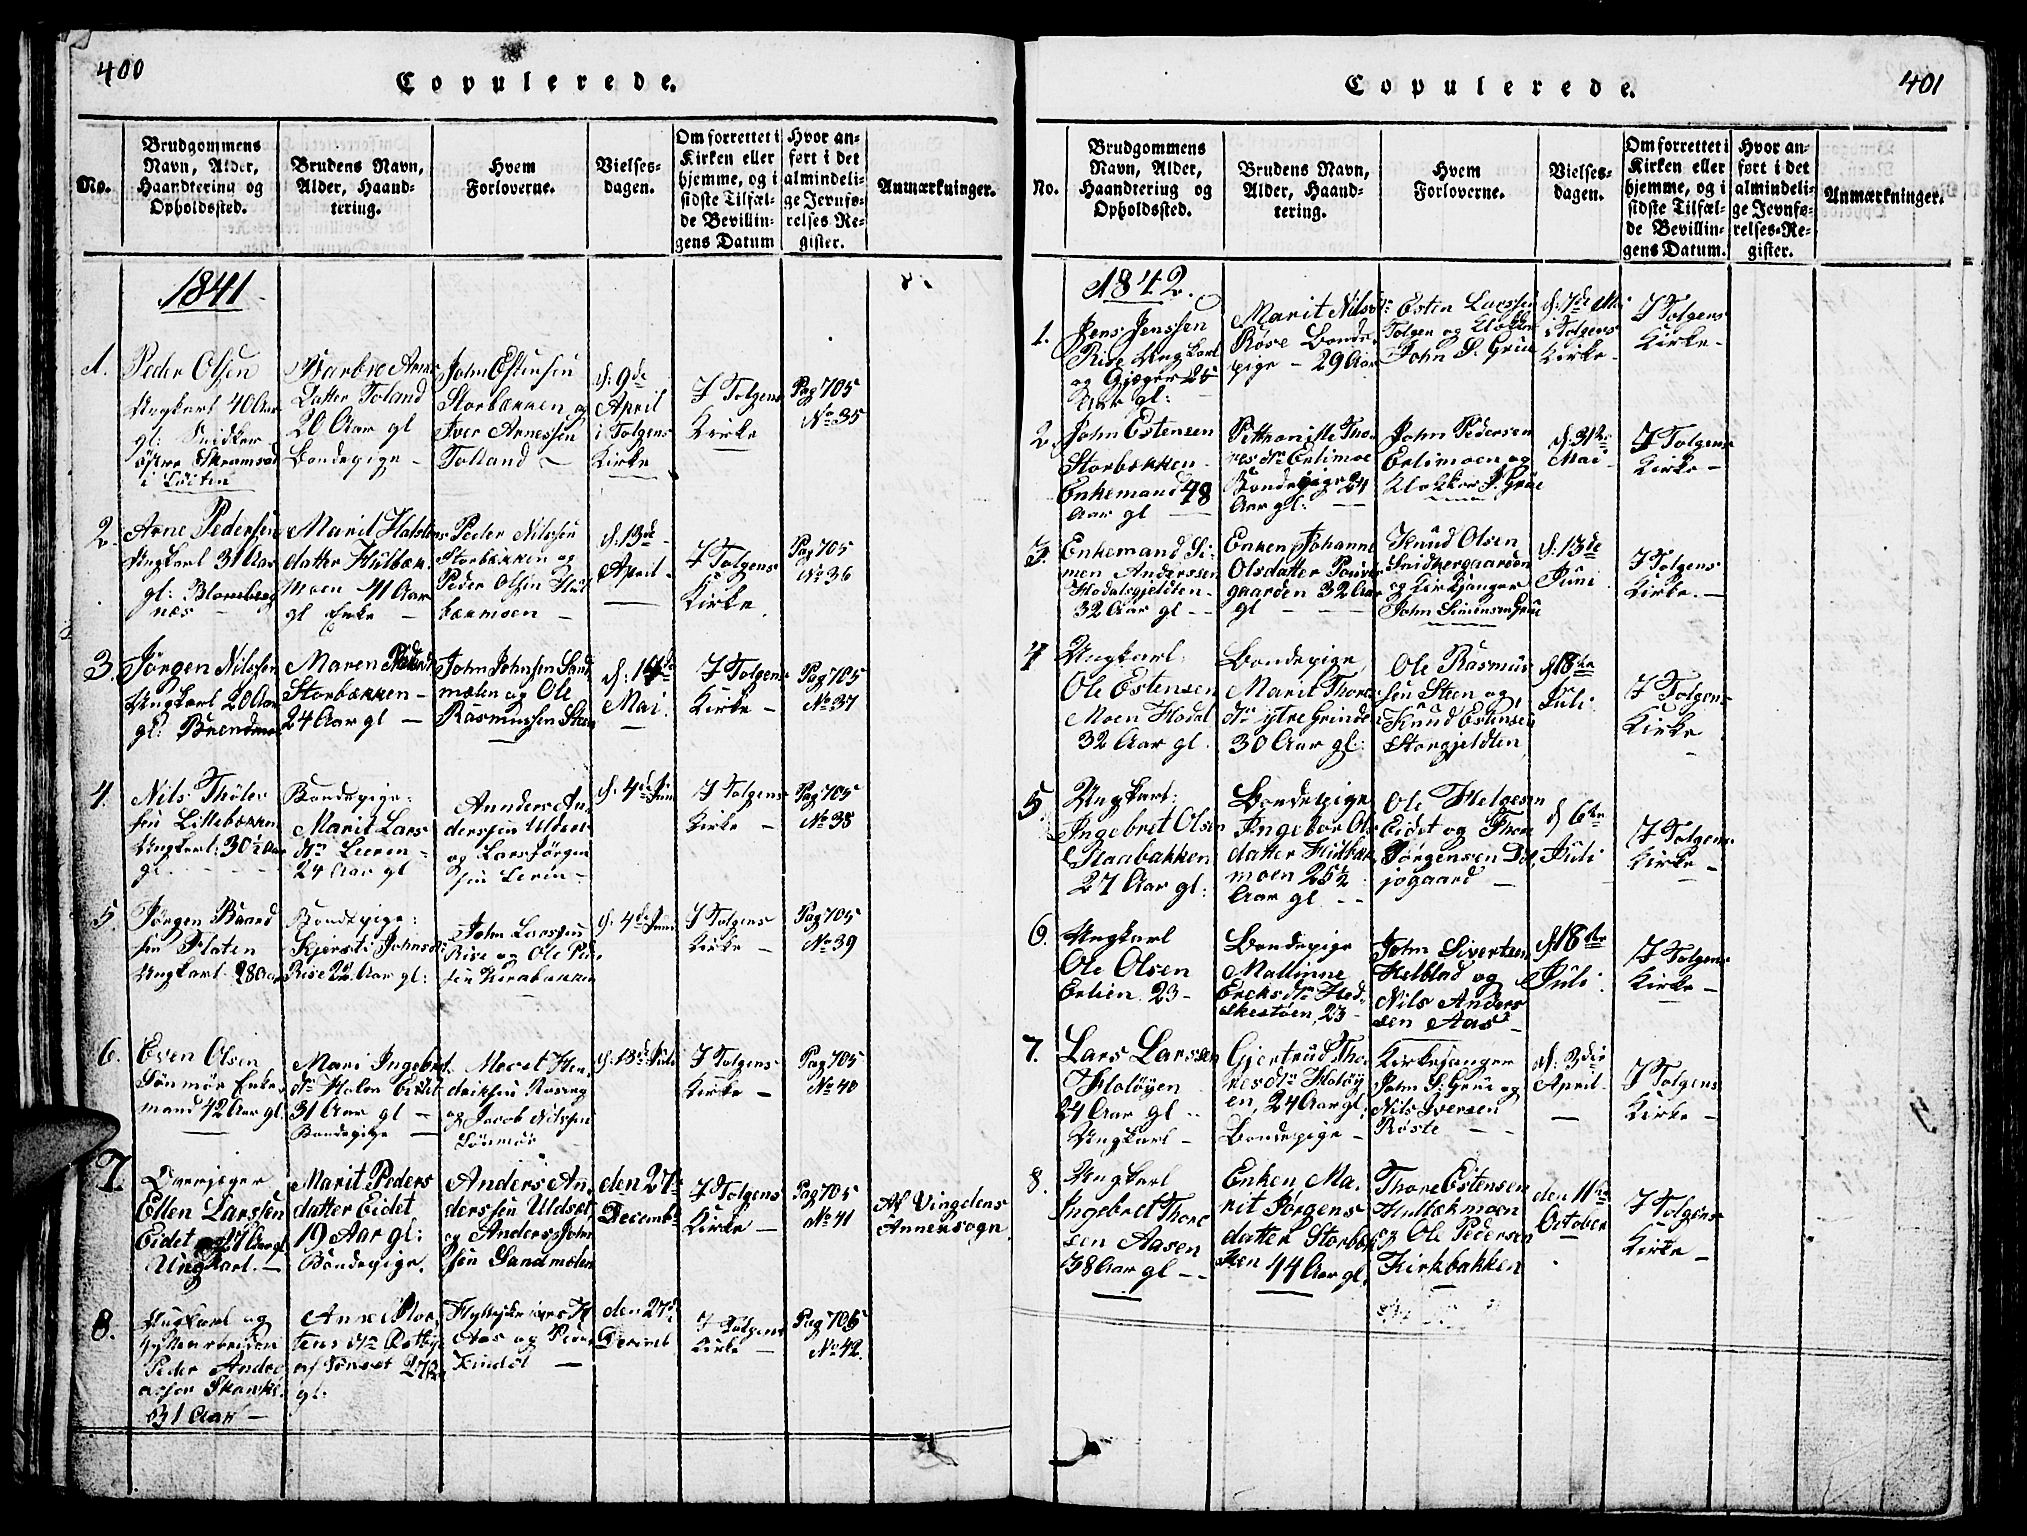 400
Copulerede.
No.
Brudgommens
Navn, Alder,
Haandtering og
Opholdssted.
Brudens Navn,
Alder, Haand-
tering.
Hvem
Forloverne.
Vielses-
dagen.
Om forrettet i
Kirken eller
hjemme, og i
sidste Tilfæl-
de Bevillin-
gens Datum
Hvor an-
ført i det
almindeli-
ge Jevnfø-
relses-Re-
gister.
Anmærkninger.
1841
1.
Peder Olsen
Ungkarl 40 Aar
gl: Snidker
østre
i
Datter Toland
20 Aar gl
Bondepige -
John Estensen
Storbækken og
Iver Arnessen
Tolland
d: 9de
April
i Tolgens
Kirke
I Tolgens
Kirke
Pag 705
No 35
2.
Arne Pedersen
Ungkarl 31 Aar
gl:
næs
Marit
datter
Moen 41 Aar
gl Enke -
Peder Nilssen
Storbækken og
Peder Olsen
bækmoen -
d: 13de
April -
I Tolgens
Kirke.
Pag 705
No 36
3.
Jørgen Nilssen
Ungkarl 20 Aar
gl:
Maren
Storbækken -
24 Aar gl -
John Johnsen Sand
mælen og Ole
Rasmussen Steen
Mai
I Tolgens
Kirke -
Pag 705
No 37
4.
Nils
sen Lillebækken
Ungkarl: 30½ Aar
gl
Bondepige:
Marit Lars
dtr Leeren -
24 Aar gl
Anders An
derssen Uldset
og Lars Jørgen
sen Leren -
d. 4de Juni
I Tolgens
Kirke -
Pag 705
No 38
5.
Jørgen Baard
sen Floten
Ungkarl. 28 Aar
Bondepige:
Kjersti Johnsdtr
Rise 22 Aar gl:
John Larssen
Rise og Ole
sen
d. 4de Juni
I Tolgens
Kirke -
Pag 705
No 39
6.
Even Olsen
Lønmør Enke
mand 42 Aar gl.
Mari Ingebret
dtr Holen Eidet
31 Aar gl -
Bondepige -
Meret Hen
driksen
og Jacob Nilssen
Lønmør
d: 13de Juli
I Tolgens
Kirke -
Pag 705
No 40
7.
Ellen Larssen
Eidet 27 Aar gl
Ungkarl. -
Marit Peders
datter Eidet
19 Aar gl:
Bondepige.
Anders An
derssen Uldset
og Anders John
sen Sandmælen
den 27de
Decembr
I Tolgens
Kirke -
Pag 705
No 41
Af Vingelens
Annexsogn.
8.
Ungkarl og
Peder Andre
31 Aar -
Anne Mor
tens dtr
af Tønset
gl:
Aas og Peder
den 27de
I Tolgens
Kirke -
Pag 705
No 42.
401
Copulerede.
No.
Brudgommens
Navn, Alder,
Haandtering og
Opholdssted.
Brudens Navn,
Alder, Haand-
tering.
Hvem
Forloverne.
Vielses-
dagen.
Om forrettet i
Kirken eller
hjemme, og i
sidste Tilfæl-
de Bevillin-
gens Datum.
Hvor an-
ført i det
almindeli-
ge Jevnfø-
relses-Re-
gister.
Anmærkninger.
1842.
1.
Jens Jenssen
Rise Ungkarl
og Gjæger 25
Aar gl:
Marit Nilsdtr
Røse Bonde
pige - 29 Aar
Esten Larssen
Tolgen og Klokker
John S. Grue
i Tolgens
Kirke -
I Tolgens
Kirke -
2.
John Estensen
Storbækken -
Enkemand 48
Aar gl -
Petronille Tho
res dtr Erlimoe
Bondepige 24
Aar gl: -
John Pedersen
Erlimoen og
Klokker S. Grue
d. 31te
Mai -
I Tolgens
Kirke -
3.
Enkemand Si-
men Anderssen
Hodalsgjeldten -
32 Aar gl -
Enken Johanne
Olsdatter
gaarden 32 Aar
gl - -
Knud Olsen
Snidkergaarden
og Kirkesanger
John Simensen Grue
d: 13de
Juni
I Tolgens
Kirke. -
4
Ungkarl:
Ole Estensen
Moen Hodal
32 Aar gl.
Bondepige,
Marit Thores
dtr ytre Grinde
30 Aar gl:
Ole Rasmus
sen Steen og
Knud Estensen
Storgjeldten
d 18de
Juli
I Tolgens
Kirke
5.
Ungkarl:
Ingebret Olsen
Raabakken
27 Aar gl:
Bondepige
Ingebor Ols
datter
moen 25½
Aar gl. -
Ole Helgesen
Eidet og Thore
Jørgensen
jøgaard -
d 6te
Juli
I Tolgens
Kirke -
6.
Ungkarl
Ole Olsen
Erlien. 23 -
Bondepige
Mallinne
Ericks dtr Hed
23 -
John Sivertsen
og
Nils Anders
sen Aas -
d. 18de
Juli.
I Tolgens
Kirke -
7.
Lars Larssen
Holøyen
24 Aar gl -
Ungkarl -
Gjertrud Tho
res dtr Holøy
en, 24 Aar gl:
Bondepige -
Kirkesanger
John S: Grue og
Nils Iversen
Røste -
April.
I Tolgens
Kirke -
8.
Ungkarl
Ingebret Thore
sen Aasen
38 Aar gl - -
Enken Ma
rit Jørgens
datter Storbæk
ken 44 Aar gl.
Thore Estensen
og Ole Pedersen
Kirkbakken
den 11te
October
I Tolgens
Kirke -